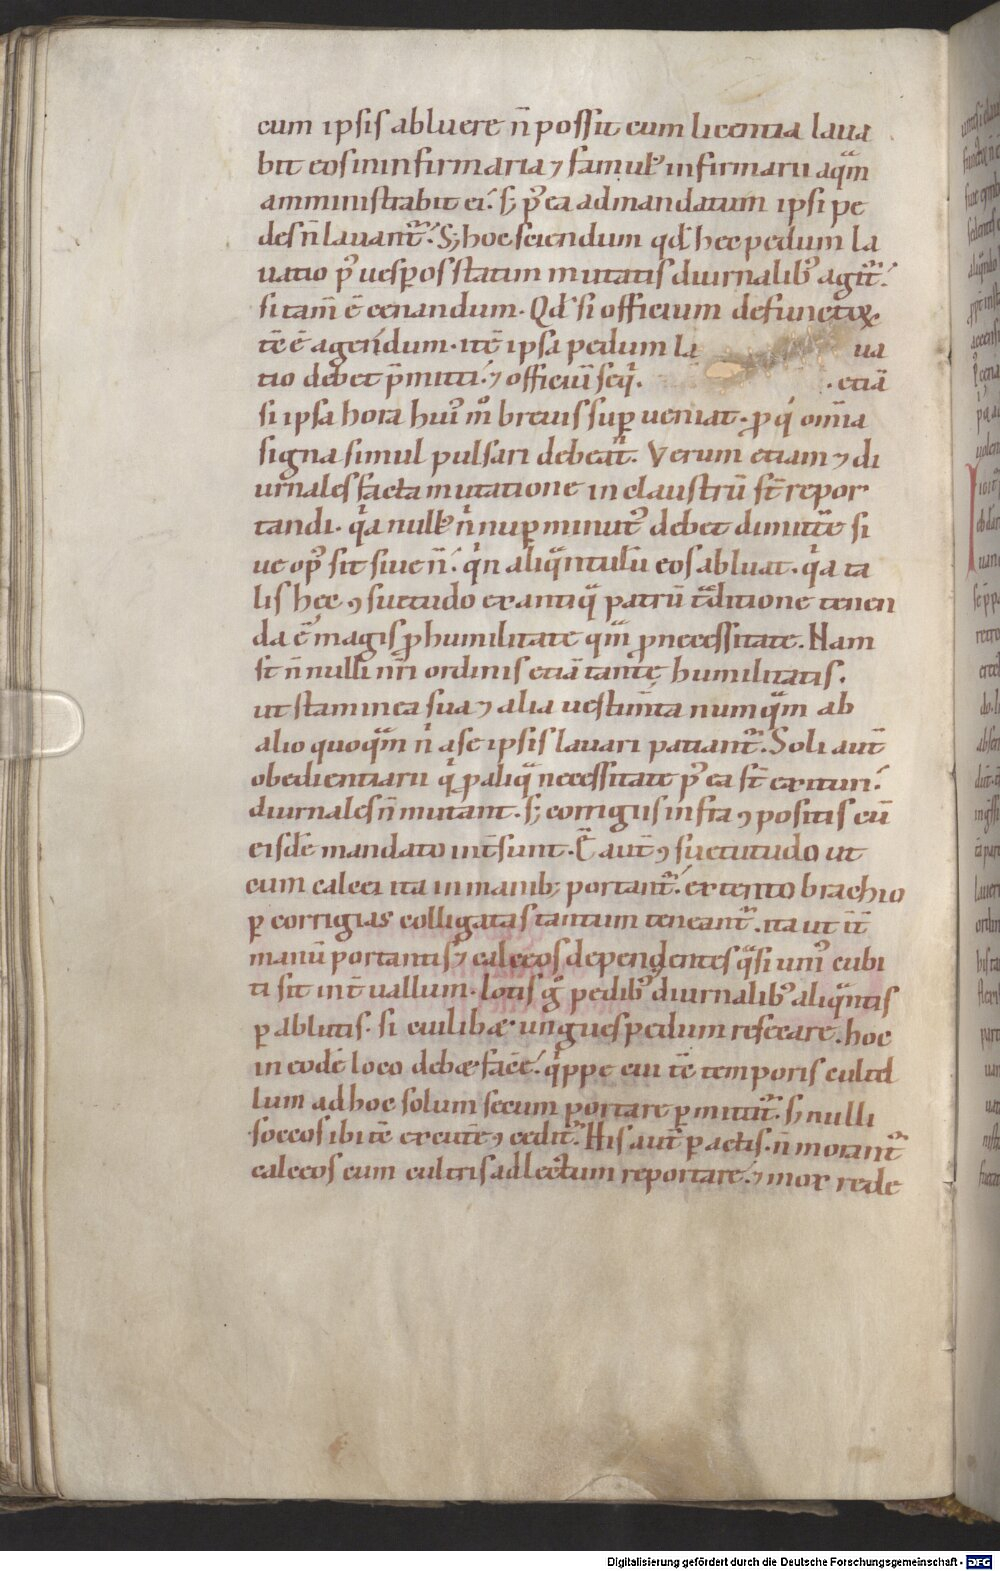 cum ipsis abluere n̄ possit cum licentia laua
bit eos in infirmaria ⁊ famul̄ infirmarii aqᷓm
amministrabit ei. sꝫ p᷒ ea ad mandatum ipsi pe
des n̄ lauant᷒. Sꝫ hoc sciendum qđ hec pedum la
uatio p᷒ uesꝑos statim mutatis diurnalib᷒ agit᷒.
si tam̄ ē cenandum. Qđ si officium defunctoꝝ
tē ē agendum. itē ipsa pedum la ua
tio debet p̄mitti. ⁊ officiū seq̇. . etiā
si ipsa hora hui᷒ m̊ breuis suꝑueniat. ꝓ q̇ om̄ia
signa simul pulsari debeat᷒. Verum etiam ⁊ di
urnales facta mutatione in claustrū st̄ repor
tandi. q̇a null᷒ n̄ nuꝑ minut᷒ debet dimitt̄e si
ue op᷒ sit siue n̄. q̇n aliqᷓntulū eos abluat. q̇a ta
lis hęc ꝯsuetudo ex antiqᷓ patrū tᷓditione tenen
da ē magis ꝓ humilitate qᷓm ꝓ necessitate. Nam
st̄ n̄nulli nr̄i ordinis etiā tantę humilitatis.
ut staminea sua ⁊ alia uestim̄ta numqᷓm ab
alio quoqᷓm n̄ a se ipsis lauari patiant᷒. Soli aut̄
obedientiarii q̇ ꝓ aliqᷓ necessitate p᷒ ea st̄ exituri.
diurnales n̄ mutant. sꝫ corrigiis infra ꝯpositis cū
eisdē mandato int̄sunt. Ē aut̄ ꝯsuetutudo ut
cum calcei ita in manibꝫ portant᷒. extento brachio
ꝑ corrigias colligatas tantum teneant᷒. ita ut int̄
manū portantis ⁊ calceos dependentes qᷓsi uni᷒ cubi
ti sit int̄uallum. Lotis g̊ pedib᷒ diurnalib᷒ aliqᷓntis
ꝑ ablutis. si cuilibæ ungues pedum resecare. hoc
in eodē loco debæ facē. q̇ppe cui tē temporis cultel
lum ad hoc solum secum portare ꝑmittit᷒. sꝫ nulli
soccos ibi tē excutē ꝯcedit᷒. His aut̄ ꝑactis. n̄ morant᷒
calceos cum cultris ad lectum reportare. ⁊ mox rede
Digitalisierung gefördert durch die Deutsche Forschungsgemeinschaft - DFG